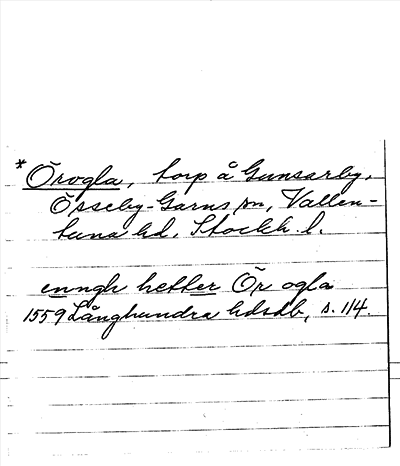 * Örogla, torp å Gunsarby,
Össeby-Garns sn, Vallen-
tuna hd, Stockh. l.
enngh hetter Ör ogla
1559 Långhundra hdsdb, s. 114.